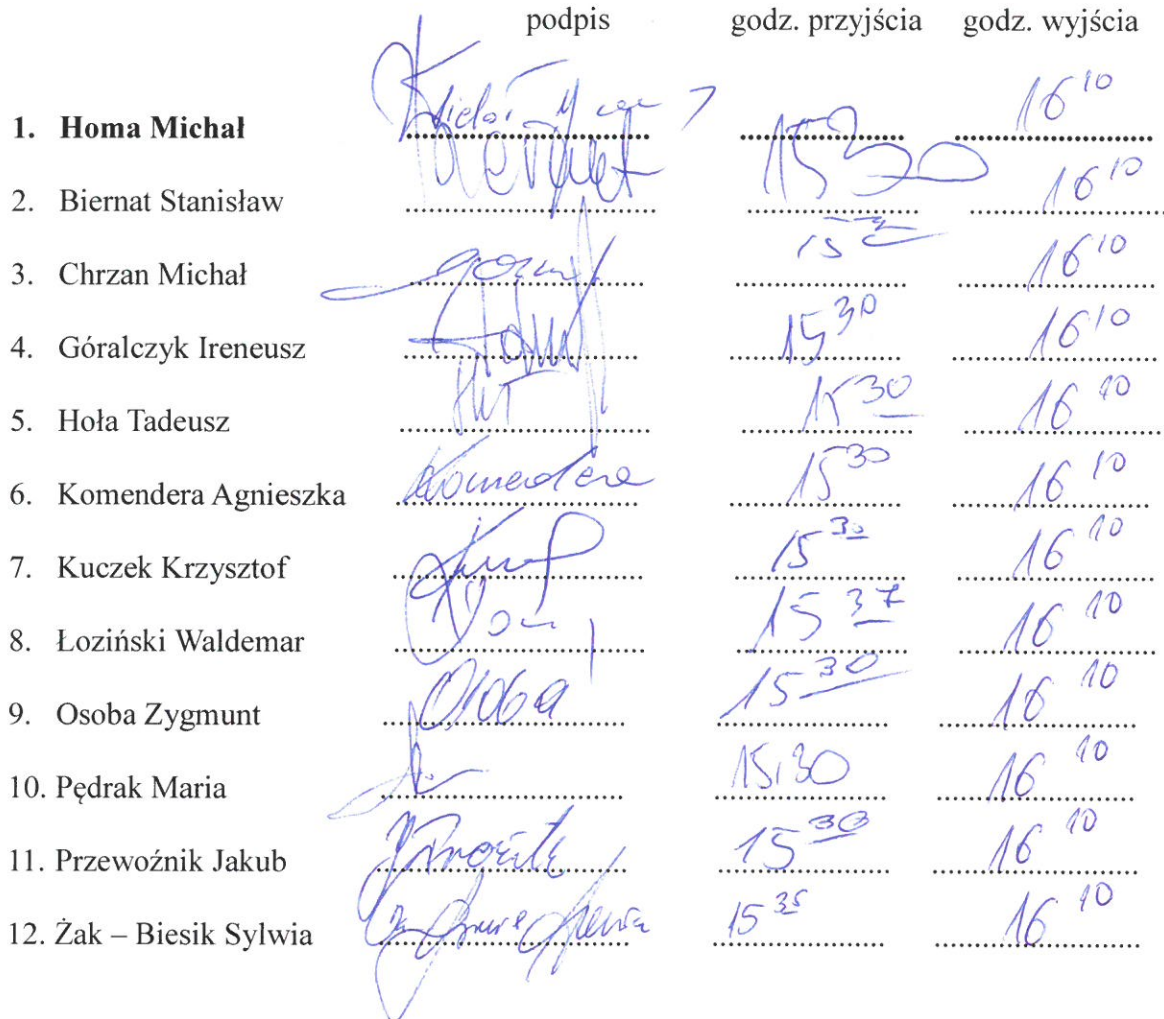 podpis godz. przyjścia godz. wyjścia
1. Homa Michał 16 10
2. Biernat Stanisław 15 30 16 10
3. Chrzan Michał 16 10
4. Góralczyk Ireneusz 15 30 16 10
5. Hoła Tadeusz 15 30 16 10
6. Komendera Agnieszka Komendera 15 30 16 10
7. Kuczek Krzysztof 15 30 16 10
8. Łoziński Waldemar 15 37 16 10
9. Osoba Zygmunt Osoba 15 30 16 10
10. Pędrak Maria 15.30 16 10
11. Przewoźnik Jakub 15 30 16 10
12. Żak – Biesik Sylwia 15 35 16 10